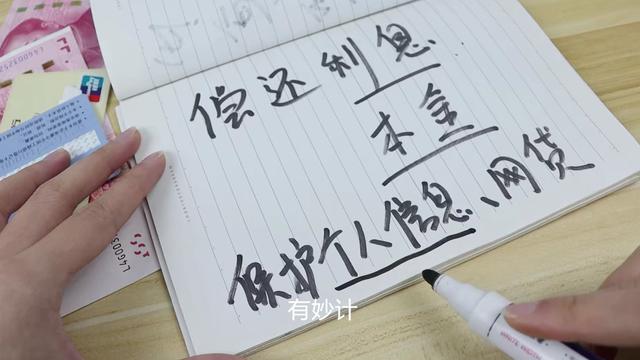 偿还利息
本金
保护个人信息、网贷
有妙计
L4G003252
L4G003